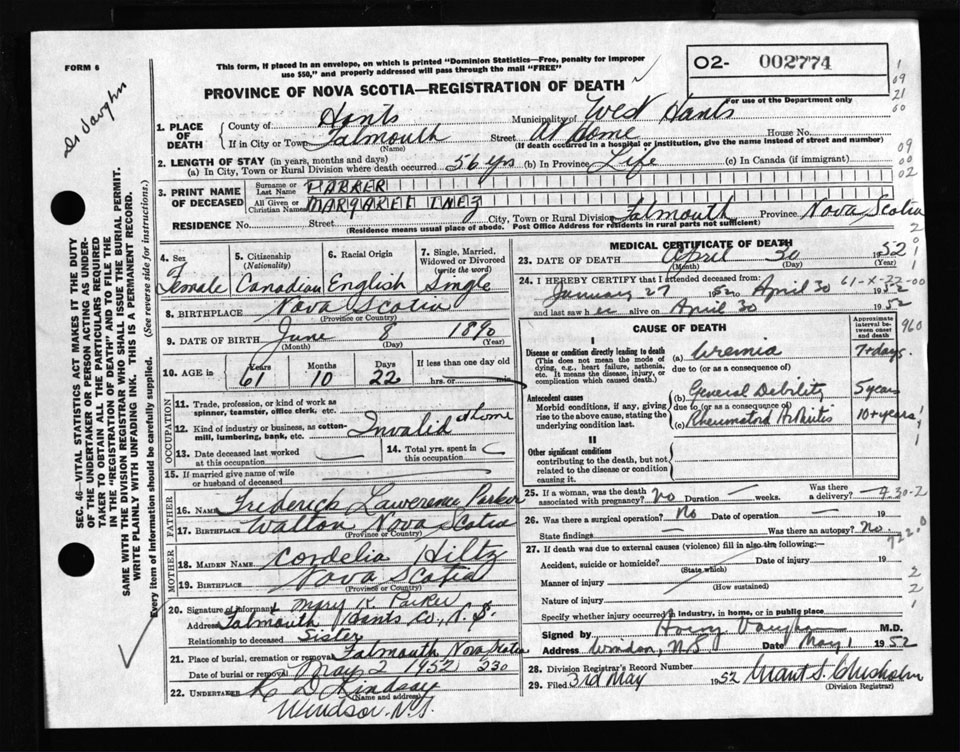 FORM 6
This form, if placed in an envelope, on which is printed "Dominion Statistics—Free, penalty for improper
use $50," and properly addressed will pass through the mail "FREE"
O2- 002774
For use of the Department only
PROVINCE OF NOVA SCOTIA—REGISTRATION OF DEATH
Dr Vaughn
1. PLACE OF DEATH
County of Hants Municipality of West Hants
If in City or Town Falmouth (Name) Street At Home House No.
(If death occurred in a hospital or institution, give the name instead of street and number)
2. LENGTH OF STAY (in years, months and days)
(a) In City, Town or Rural Division where death occurred 56 yrs (b) In Province Life (c) In Canada (if immigrant)
3. PRINT NAME OF DECEASED
Surname or Last Name PARKER
All Given or Christian Names MARGARET INEZ
RESIDENCE No. Street City, Town or Rural Division Falmouth Province Nova Scotia
(Residence means usual place of abode. Post Office Address for residents in rural parts not sufficient)
4. Sex Female
5. Citizenship (Nationality) Canadian
6. Racial Origin English
7. Single, Married, Widowed or Divorced (write the word) Single
8. BIRTHPLACE Nova Scotia
(Province or Country)
9. DATE OF BIRTH June 8 1890
(Month) (Day) (Year)
10. AGE in Years 61 Months 10 Days 22 If less than one day old hrs. or min.
OCCUPATION
11. Trade, profession or kind of work as spinner, teamster, office clerk, etc.
12. Kind of industry or business, as cotton-mill, lumbering, bank, etc. Invalid at home
13. Date deceased last worked at this occupation
14. Total yrs. spent in this occupation
15. If married give name of wife or husband of deceased
FATHER
16. Name Frederick Lawerence Parker
17. Birthplace Walton Nova Scotia
(Province or Country)
MOTHER
18. MAIDEN NAME Cordelia Hiltz
19. BIRTHPLACE Nova Scotia
(Province or Country)
20. Signature of informant Mary K. Parker
Address Falmouth Hants Co., N.S.
Relationship to deceased Sister
21. Place of burial, cremation or removal Falmouth Nova Scotia
Date of burial or removal May 2 1952 230
22. UNDERTAKER K D Lindsay
(Name and address)
Windsor. N.S.
MEDICAL CERTIFICATE OF DEATH
23. DATE OF DEATH April 30 1952
(Month) (Day) (Year)
24. I HEREBY CERTIFY that I attended deceased from:
January 27 1952 to April 30 1952
and last saw her alive on April 30 1952
CAUSE OF DEATH
Approximate interval between onset and death
I
Disease or condition directly leading to death
(This does not mean the mode of dying, e.g., heart failure, asthenia, etc. It means the disease, injury, or complication which caused death.)
(a) Uremia 7+days.
due to (or as a consequence of)
Antecedent causes
Morbid conditions, if any, giving rise to the above cause, stating the underlying condition last.
(b) General Debility 5 years
due to (or as a consequence of)
(c) Rheumatoid Arthritis 10+years
II
Other significant conditions
contributing to the death, but not related to the disease or condition causing it.
25. If a woman, was the death associated with pregnancy? No Duration — weeks. Was there a delivery? —
26. Was there a surgical operation? No Date of operation — 19
State findings — Was there an autopsy? No.
27. If death was due to external causes (violence) fill in also the following:—
Accident, suicide or homicide? Date of injury 19
(State which)
Manner of injury
(How sustained)
Nature of injury
Specify whether injury occurred in industry, in home, or in public place
Signed by Vaughan M.D.
Address Windsor, N.S. Date May 1 1952
28. Division Registrar's Record Number
29. Filed 3rd May 1952 Grant S. Chisholm
(Division Registrar)
SEC. 46—VITAL STATISTICS ACT MAKES IT THE DUTY
OF THE UNDERTAKER OR PERSON ACTING AS UNDER-
TAKER TO OBTAIN ALL THE PARTICULARS REQUIRED
IN THE "REGISTRATION OF DEATH" AND TO FILE THE
SAME WITH THE DIVISION REGISTRAR WHO SHALL ISSUE THE BURIAL PERMIT.
WRITE PLAINLY WITH UNFADING INK. THIS IS A PERMANENT RECORD.
Every item of information should be carefully supplied. (See reverse side for instructions.)